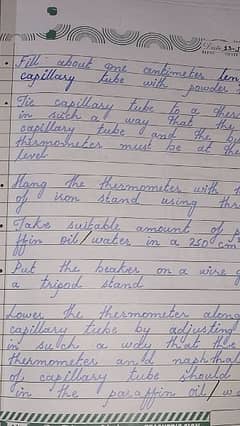 Date 13-
• Fill about one centimeter len
capillary tube with powder
• Tie capillary tube to a ther
in such a way that the
capillary tube and the
thermometer must be at the
level
• Hang the thermometer with
of iron stand using thr
• Take suitable amount of p
ffin oil/water in a 250 cm
• Put the beaker on a wire g
a tripod stand
Lower the thermometer along
capillary tube by adjusting
in such a way that the
thermometer and naphthal
of capillary tube should
in the paraffin oil/w